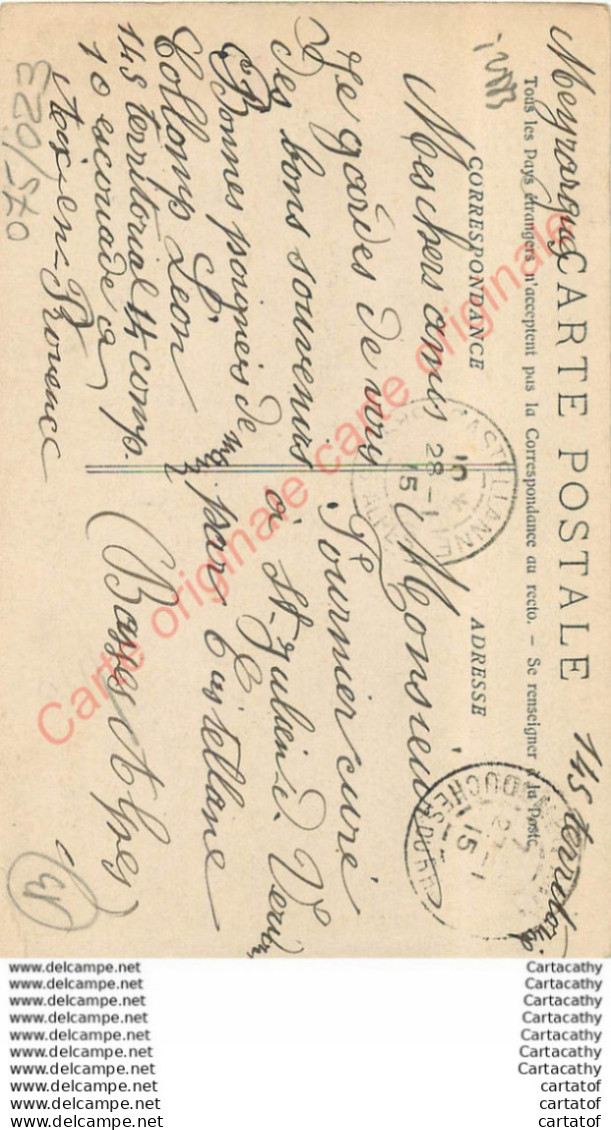 Meyrargues
145 territorial
CARTE POSTALE
Tous les Pays étrangers n'acceptent pas la Correspondance au recto. — Se renseigner à la Poste.
CORRESPONDANCE
Mes chers amis
Je gardes de vous
des bons souvenirs
Bonnes poignées de
Collomp Leon
145 territorial 14 comp.
10 escouade a
Aix-en-Provence
ADRESSE
Monsieur
Fournier curé
à St-Julien-d. Verdon
par Castellane
(Basses Alpes)
CASTELLANNE
28-1
15
BOUCHES DU RH
27-1
15
Carte originale carte originale
www.delcampe.net Cartacathy
www.delcampe.net Cartacathy
www.delcampe.net Cartacathy
www.delcampe.net Cartacathy
www.delcampe.net Cartacathy
www.delcampe.net Cartacathy
www.delcampe.net Cartacathy
www.delcampe.net cartatof
www.delcampe.net cartatof
www.delcampe.net cartatof